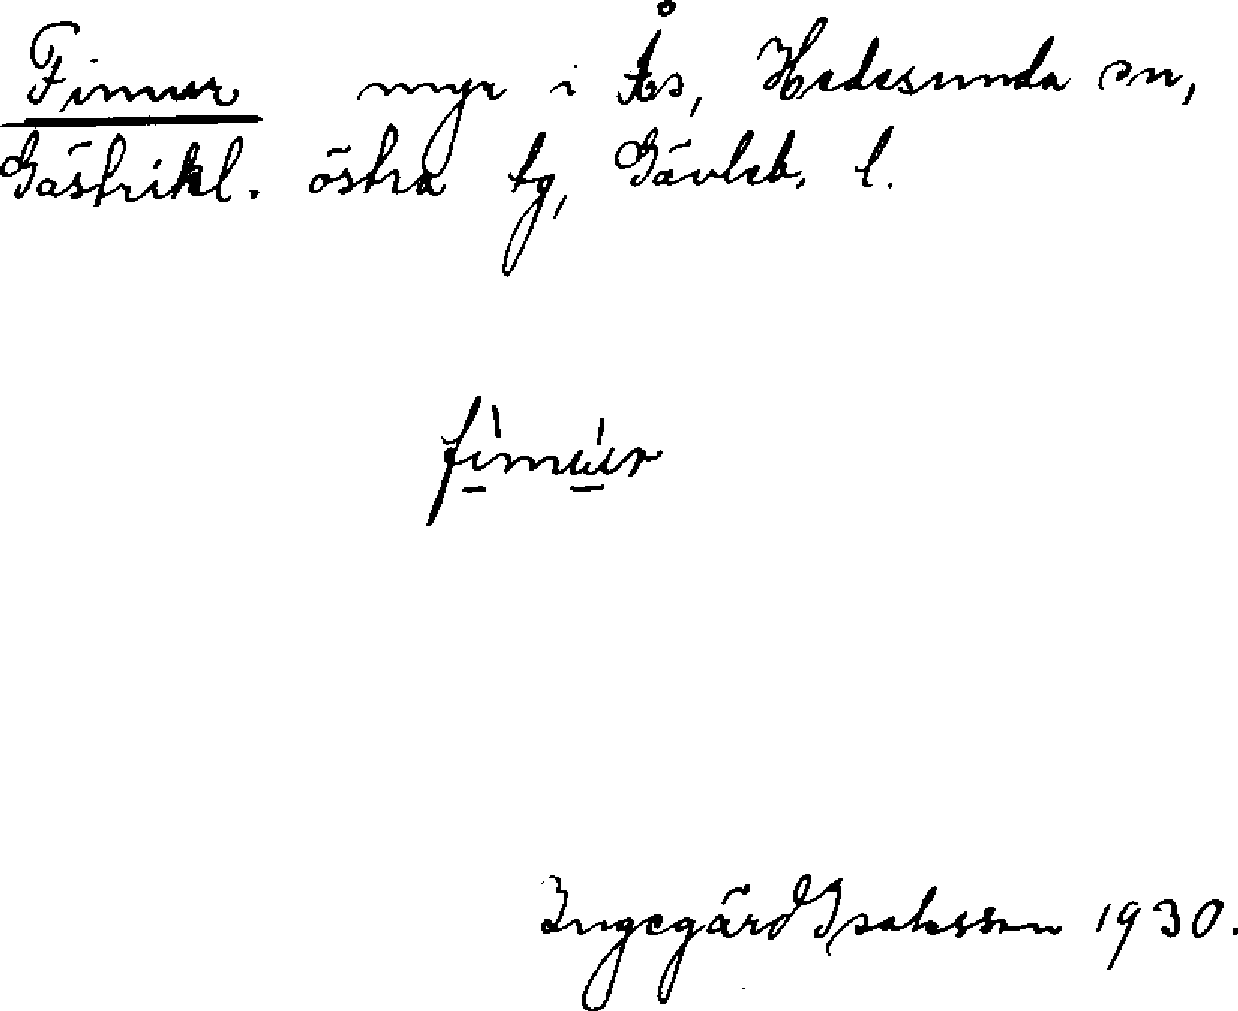 Fimur myr i Ås, Hedesunda sn,
Gästrikl. östra tg, Gävleb. l.
fimur
Ingegärd Isaksson 1930.